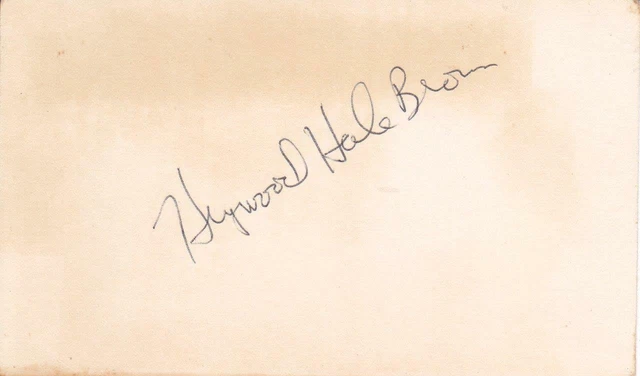 Heywood Hale Broun